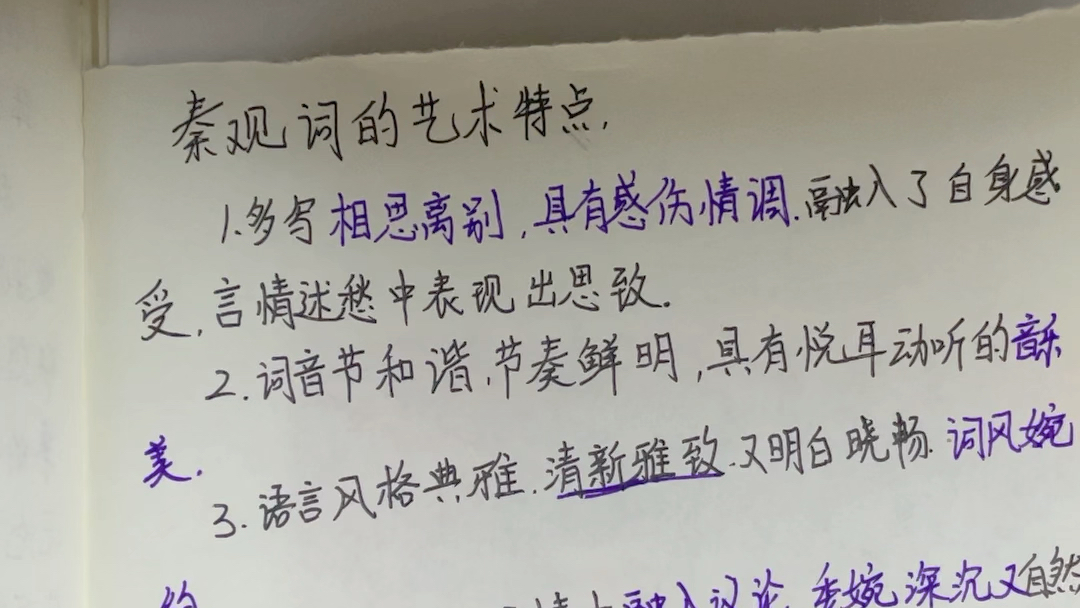 秦观词的艺术特点.
1.多写相思离别,具有感伤情调.融入了自身感
受,言情述愁中表现出思致.
2.词音节和谐.节奏鲜明,具有悦耳动听的音乐
美.
3.语言风格典雅.清新雅致.又明白晓畅.词风婉
约
融入议论.委婉深沉又自然